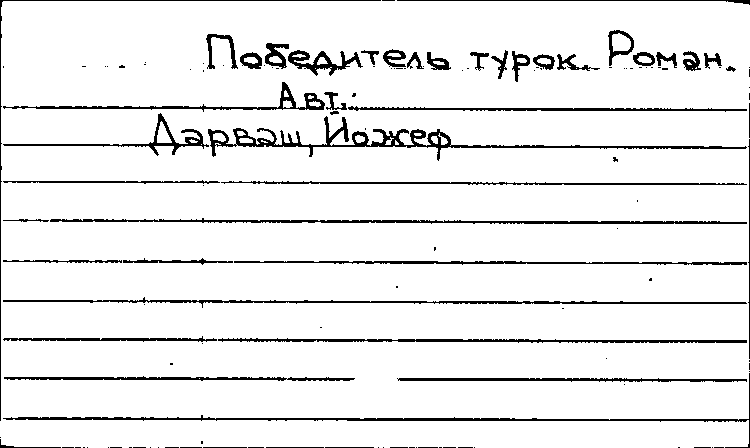 Победитель турок. Роман.
Авт.:
Дарваш, Йожеф